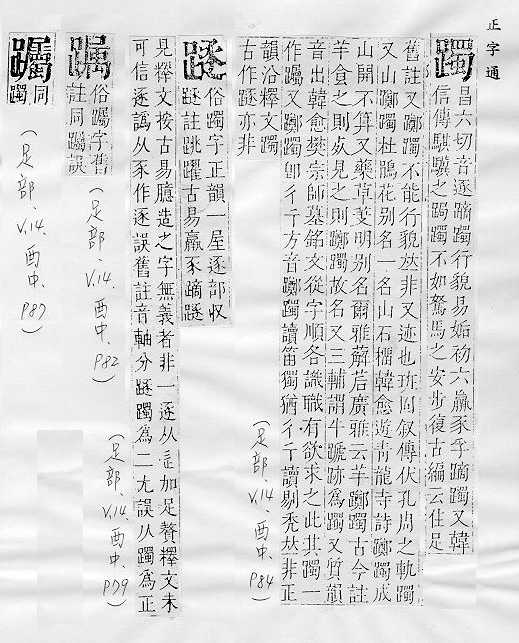 正字通
躅
昌六切音逐蹢躅行貌易姤初六羸豕孚蹢躅又韓
信傳騏驥之跼躅不如駑馬之安步復古編云住足
舊註又躑躅不能行貌𠀤非又迹也班固叙傳伏孔周之軌躅
又山躑躅杜鵑花别名一名山石榴韓愈遊青龍寺詩躑躅成
山開不算又藥草芰明别名爾雅薢茩廣雅云羊躑躅古今註
羊食之則死見之則躑躅故名又三輔謂牛蹏跡為躅又質韻
音出韓愈樊宗師墓銘文從字順各識職有欲求之此其躅一
作躅又躑躅卽彳亍方音躑躅讀笛獨猶彳亍讀剔禿𠀤非正
韻沿釋文躅
古作躑亦非
(足部、v.14、酉中、P84)
俗躅字正韻一屋逐部收
註跳躍古易羸豕蹢
見釋文按古易臆造之字無義者非一逐从辵加足贅釋文未
可信逐譌从豕作逐誤舊註音軸分躅為二尤誤从躅為正
(足部、v.14、酉中、P79)
俗躅字舊
註同躅誤
(足部、v.14、酉中、P82)
躅
同
躅
(足部、v.14、酉中、P87)